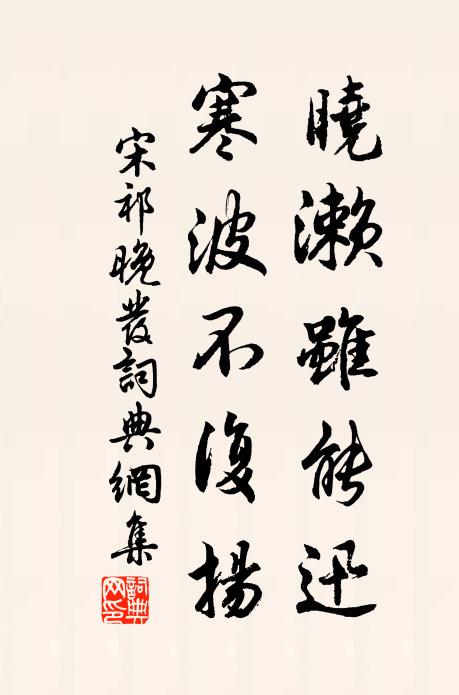 曉濑雖能迅
寒波不復揚
宋祁晚發詞典網集
詞典網印